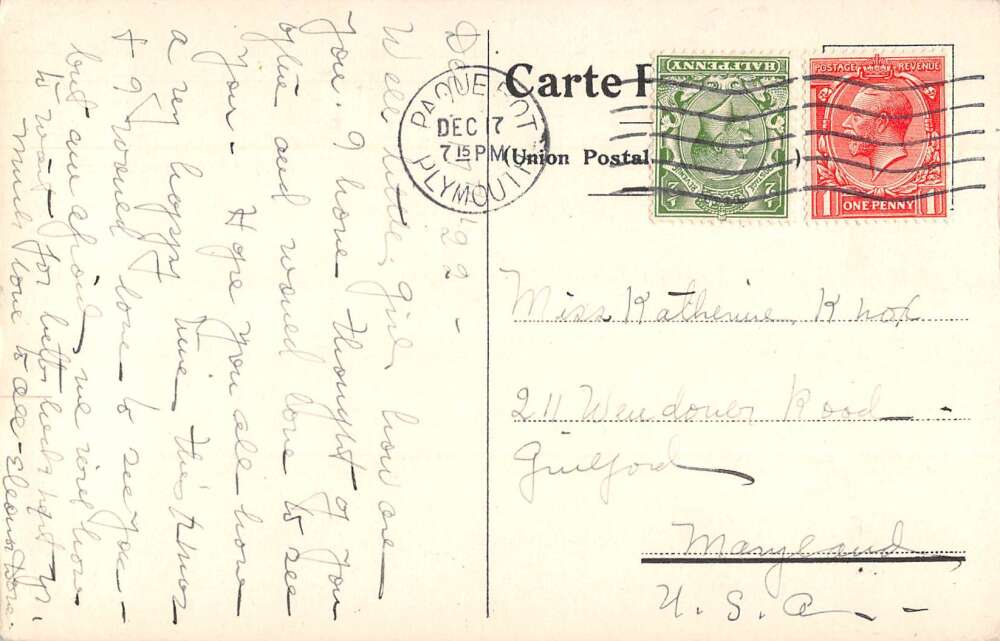 Dec 17 '29 -
Well, little girl, how are
you. I have thought of you
often and would love to see
you - Hope you all have
a very happy time this Xmas
+ I would love to see you -
but am afraid we will have
to wait for
Much love to all - Eleanor
Carte P
(Union Postal )
PAQUEBOT
DEC 17
7 15 PM
PLYMOUTH
HALFPENNY
POSTAGE REVENUE
1 ONE·PENNY 1
Miss Katherine Knox
211 Wendover Road -
Guilford
Maryland
U.S.A. -